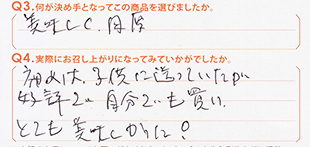 Q3.何が決め手となってこの商品を選びましたか。
美味しく、国産
Q4.実際にお召し上がりになってみていかがでしたか。
初めは、子供に送っていたが
好評で、自分でも買い、
とても美味しかった！